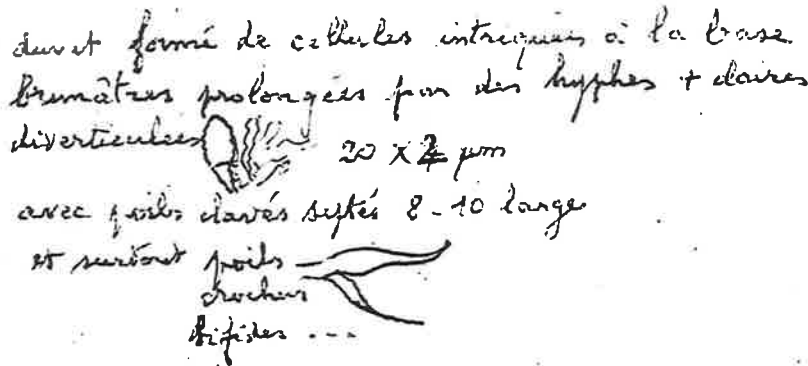 duvet formé de cellules intriquées à la base
brunâtres prolongées par des hyphes + claires
diverticulées 20 x 4 µm
avec poils clavés septés 8-10 large
et surtout poils
crochus
bifides ...